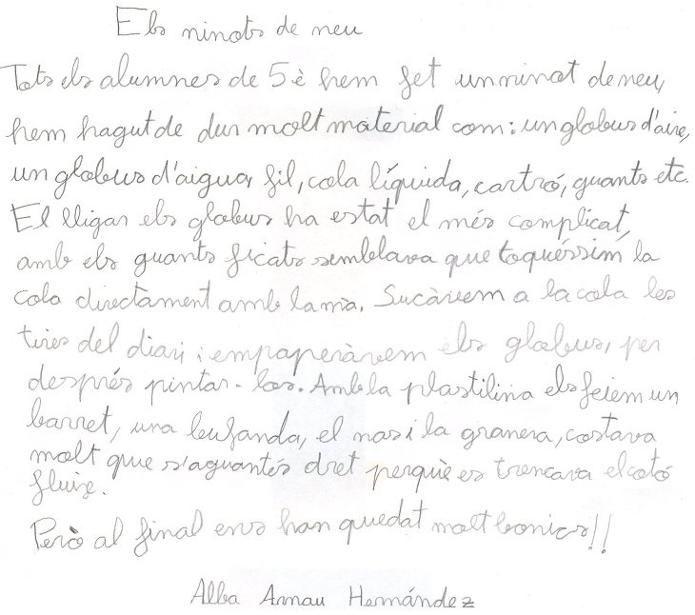 Els ninots de neu
Tots els alumnes de 5è hem fet un ninot de neu,
hem hagut de dur molt material com: un globus d'aire,
un globus d'aigua, fil, cola líquida, cartró, guants etc.
El lligar els globus ha estat el més complicat,
amb els guants ficats semblava que toquéssim la
cola directament amb la mà. Sucàvem a la cola les
tires del diari i empaperàvem els globus, per
després pintar-los. Amb la plastilina els feiem un
barret, una bufanda, el nas i la granera, costava
molt que s'aguantés dret perquè es trencava el cotó
fluix.
Però al final ens han quedat molt bonics!!
Alba Arnau Hernández